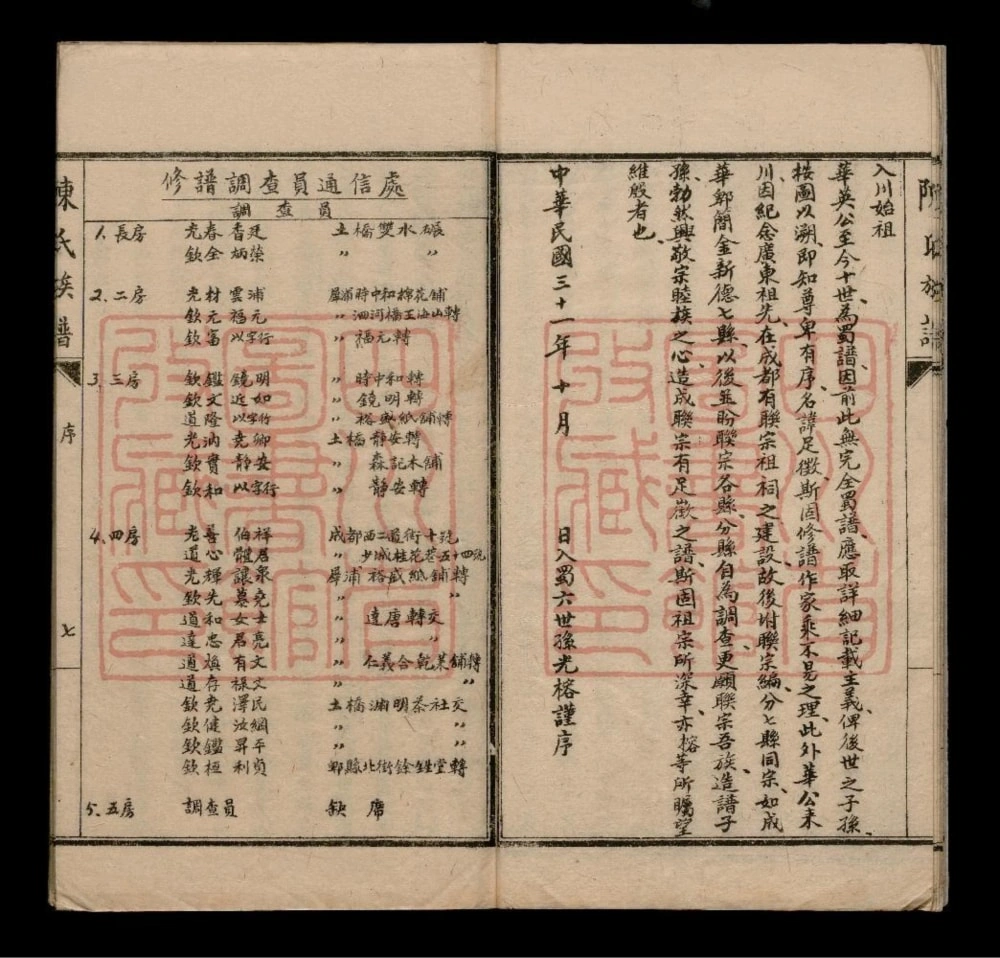 陳氏族譜
入川始祖
華英公至今十世、為蜀譜、因前此無完全蜀譜、應取詳細記載主義、俾後世之子孫、
按圖以溯、即知尊卑有序、名諱足徵、斯固修譜作家乘不易之理、此外華公來
川、因紀念廣東祖先、在成都有聯宗祖祠之建設、故後坿聯宗編、分七縣同宗、如成
華郫簡金新德七縣、以後並盼聯宗各縣、分縣自為調查、更願聯宗吾族、造譜子
孫、勃然興敬宗睦族之心、造成聯宗有足徵之譜、斯固祖宗所深幸、亦榕等所矚望
維殷者也、
中華民國三十一年十月 日入蜀六世孫光榕謹序
陳氏族譜
序
七
修譜調查員通信處
調查員
1、長房 光春 香廷 土橋雙水碾
欽全 炳榮 〃 〃
2、二房 光材 雲浦 犀浦時中和棉花舖
欽元 福元 〃 泗河橋王海山轉
欽富 以字行 〃 福元轉
3、三房 欽鑑 鏡明 〃 時中和轉
欽文 近如 〃 鏡明轉
道隆 以字行 〃 裕盛紙舖轉
光汭 堯卿 土橋靜安轉
欽實 靜安 〃 森記木舖
欽和 以字行 〃 靜安轉
4、四房 光善 伯祥 成都西二道街十號
道心 體居 〃 少城桂花巷五十四號
光輝 讓泉 犀浦裕盛紙舖轉
欽先 慕堯 〃 〃
道和 女士 〃 達唐轉交
達忠 君亮 〃 〃
道旗 有文 〃 仁義合乾菜舖轉
道存 祿文 〃 〃
欽堯 澤民 土橋淵明茶社交
欽健 汝綱 〃 〃
欽鑑 昇平 〃 〃
欽恒 利貞 郫縣北街餘堂轉
5、五房 調查員 缺席